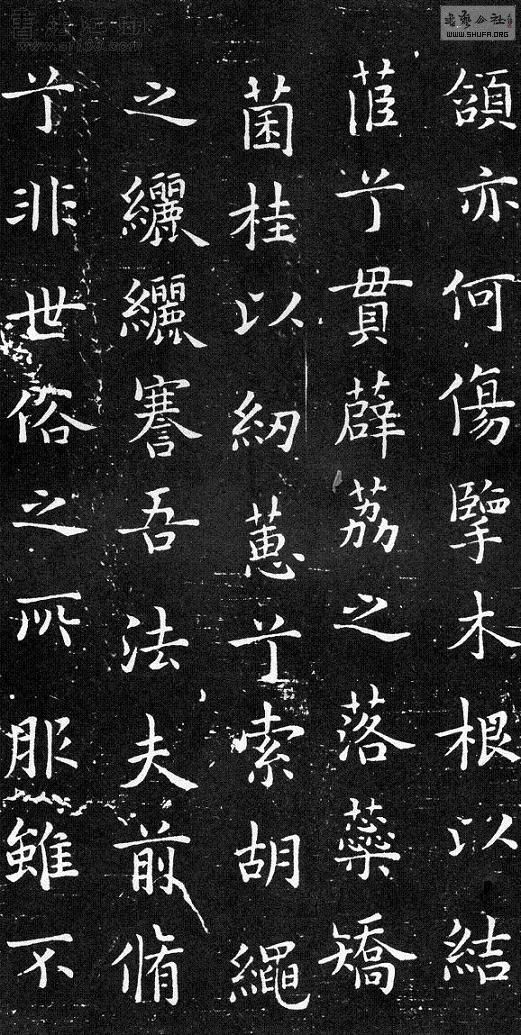 頷亦何傷擥木根以結
茝兮貫薜荔之落蘂矯
菌桂以紉蕙兮索胡繩
之纚纚謇吾法夫前脩
兮非世俗之所服雖不
WWW.SHUFA.ORG